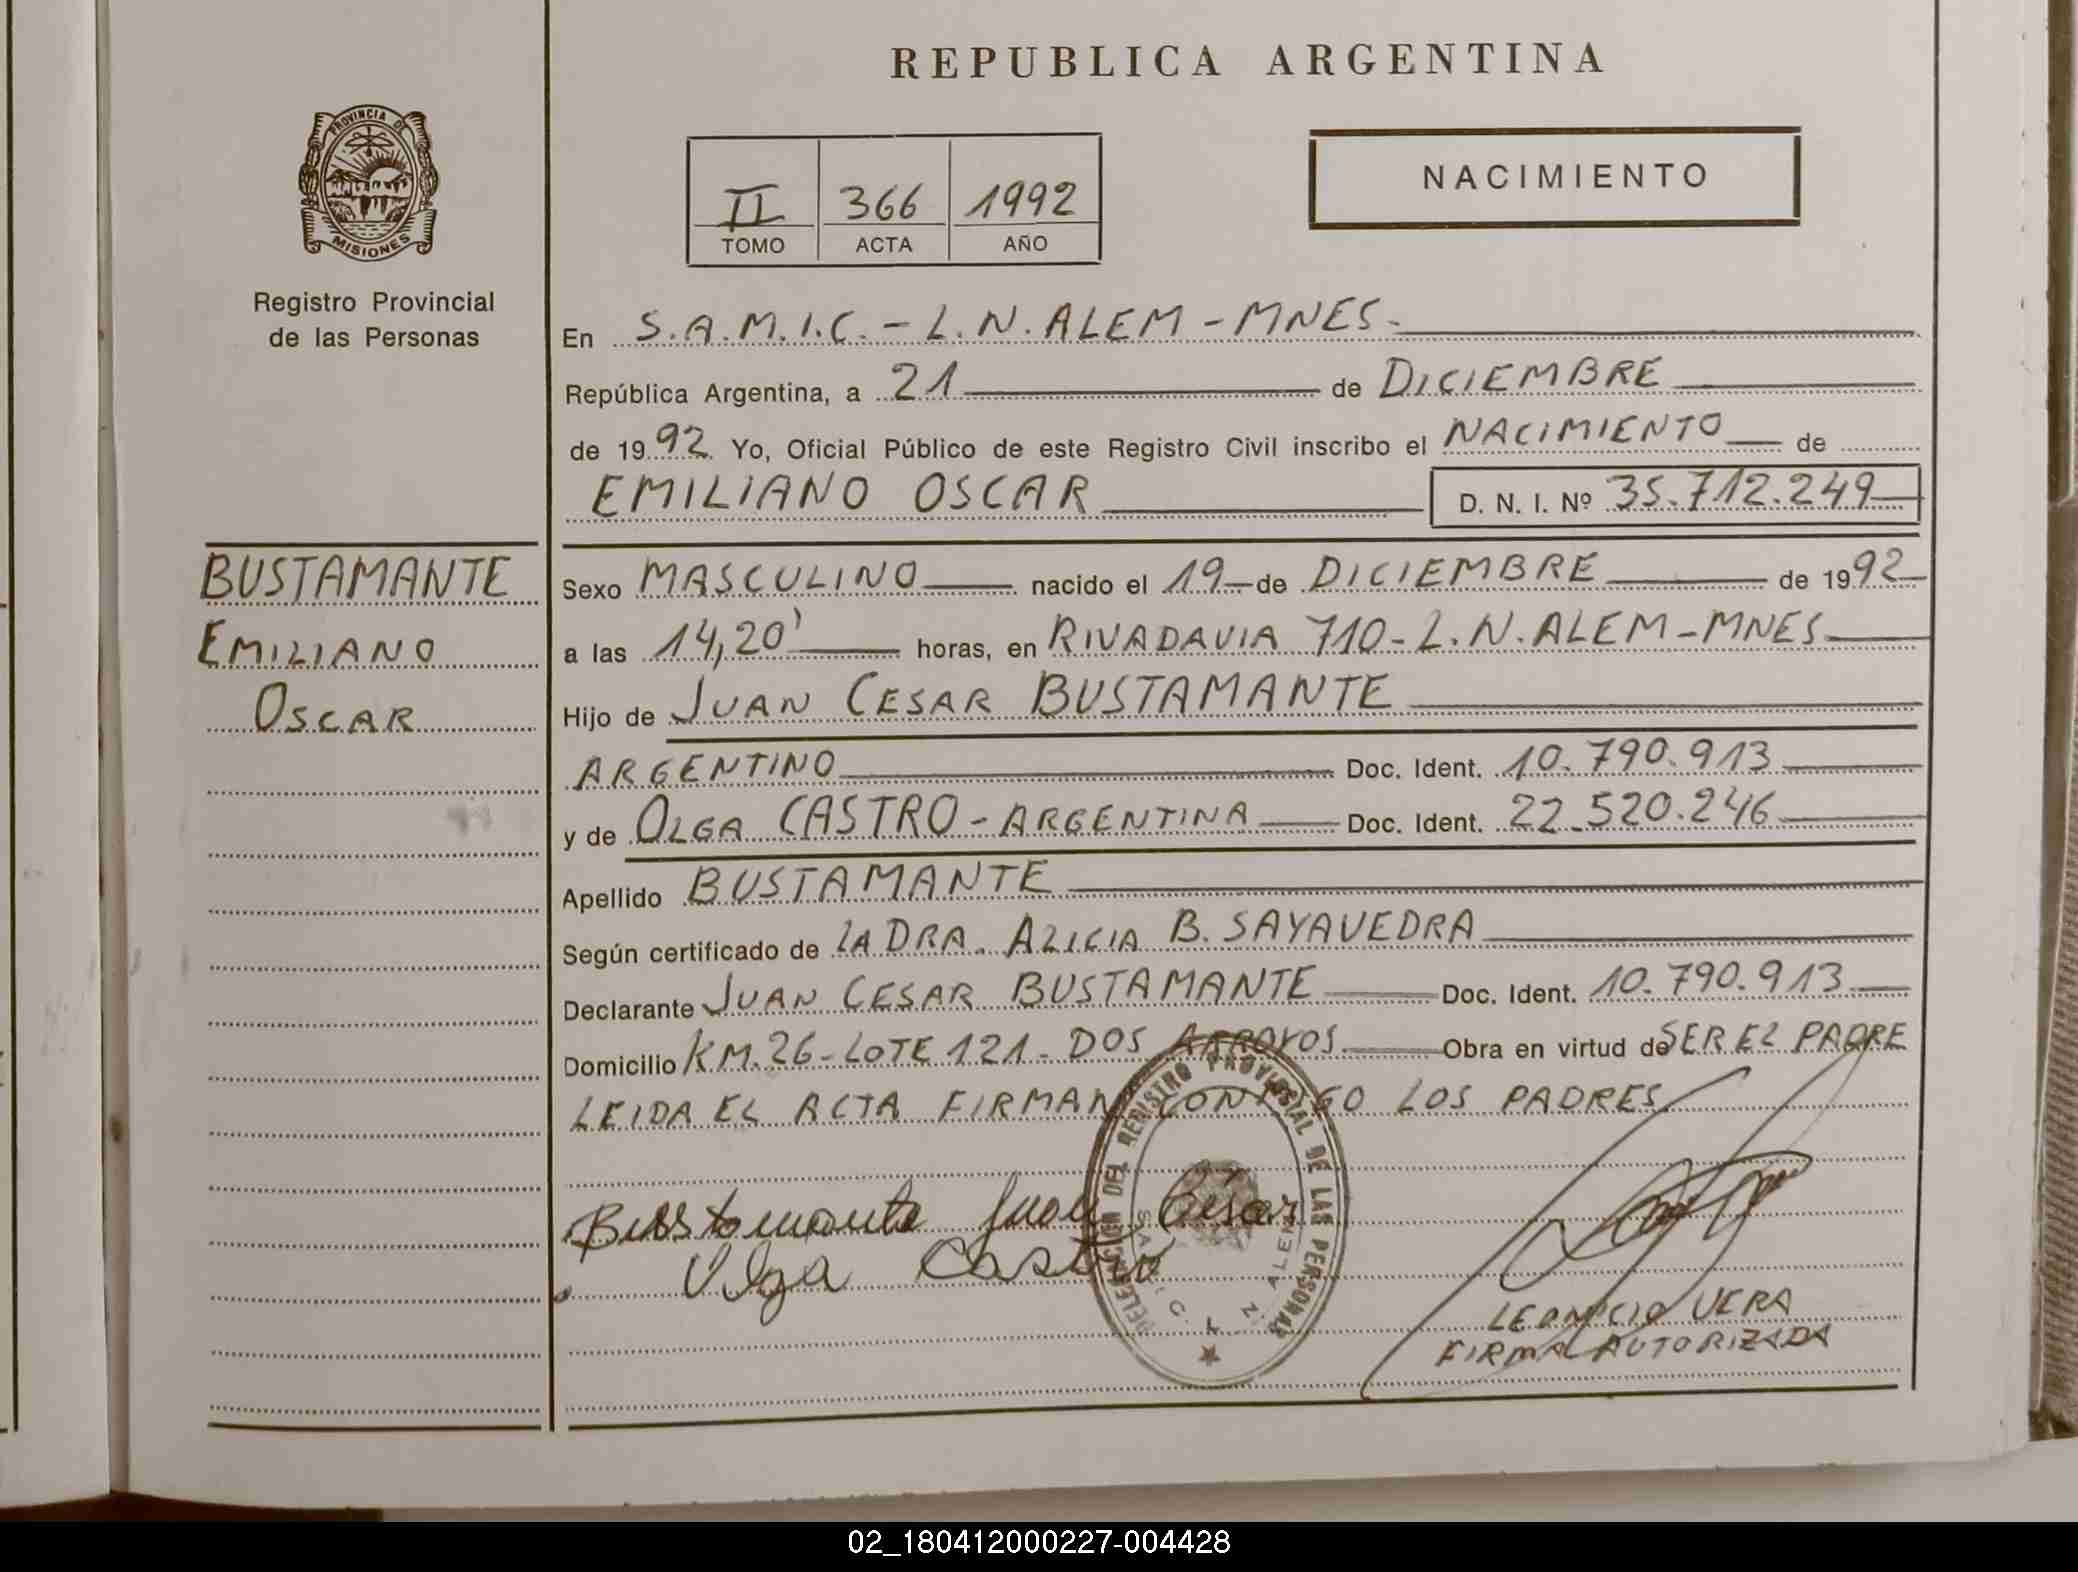 REPUBLICA ARGENTINA
PROVINCIA DE
MISIONES
Registro Provincial
de las Personas
II 366 1992
TOMO ACTA AÑO
NACIMIENTO
En S.A.M.I.C. - L.N. ALEM - MNES-
República Argentina, a 21 de DICIEMBRE
de 1992 Yo, Oficial Público de este Registro Civil inscribo el NACIMIENTO de
EMILIANO OSCAR D. N. I. Nº 35.712.249
BUSTAMANTE
EMILIANO
OSCAR
Sexo MASCULINO nacido el 19 de DICIEMBRE de 1992
a las 14,20' horas, en RIVADAVIA 710 - L.N. ALEM - MNES
Hijo de JUAN CESAR BUSTAMANTE
ARGENTINO Doc. Ident. 10.790.913
y de OLGA CASTRO - ARGENTINA Doc. Ident. 22.520.246
Apellido BUSTAMANTE
Según certificado de LA DRA. ALICIA B. SAYAVEDRA
Declarante JUAN CESAR BUSTAMANTE Doc. Ident. 10.790.913
Domicilio KM. 26 - LOTE 121 - DOS ARROYOS Obra en virtud de SER EL PADRE
LEIDA EL ACTA FIRMAN CONMIGO LOS PADRES
Bustamante Juan César
Olga Castro
DELEGACION DEL REGISTRO PROVINCIAL DE LAS PERSONAS
S.A.M.I.C. L. N. ALEM
LEONICIO VERA
FIRMA AUTORIZADA
02_180412000227-004428